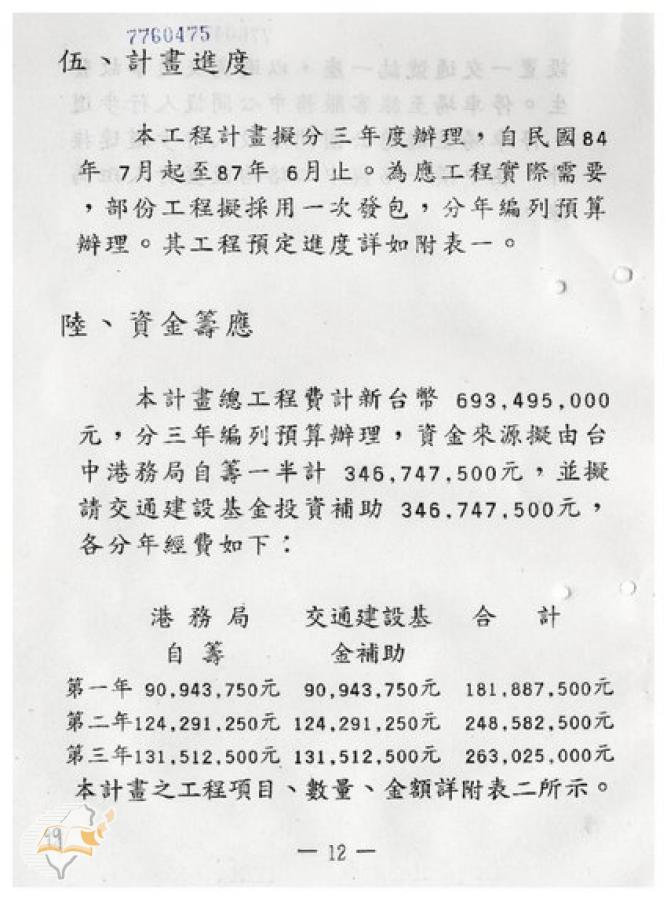 7760475
伍、計畫進度
本工程計畫擬分三年度辦理，自民國84
年 7月起至87年 6月止。為應工程實際需要
，部份工程擬採用一次發包，分年編列預算
辦理。其工程預定進度詳如附表一。
陸、資金籌應
本計畫總工程費計新台幣 693,495,000
元，分三年編列預算辦理，資金來源擬由台
中港務局自籌一半計 346,747,500元，並擬
請交通建設基金投資補助 346,747,500元，
各分年經費如下：
港務局 交通建設基 合 計
自籌 金補助
第一年 90,943,750元 90,943,750元 181,887,500元
第二年124,291,250元 124,291,250元 248,582,500元
第三年131,512,500元 131,512,500元 263,025,000元
本計畫之工程項目、數量、金額詳附表二所示。
19
— 12 —